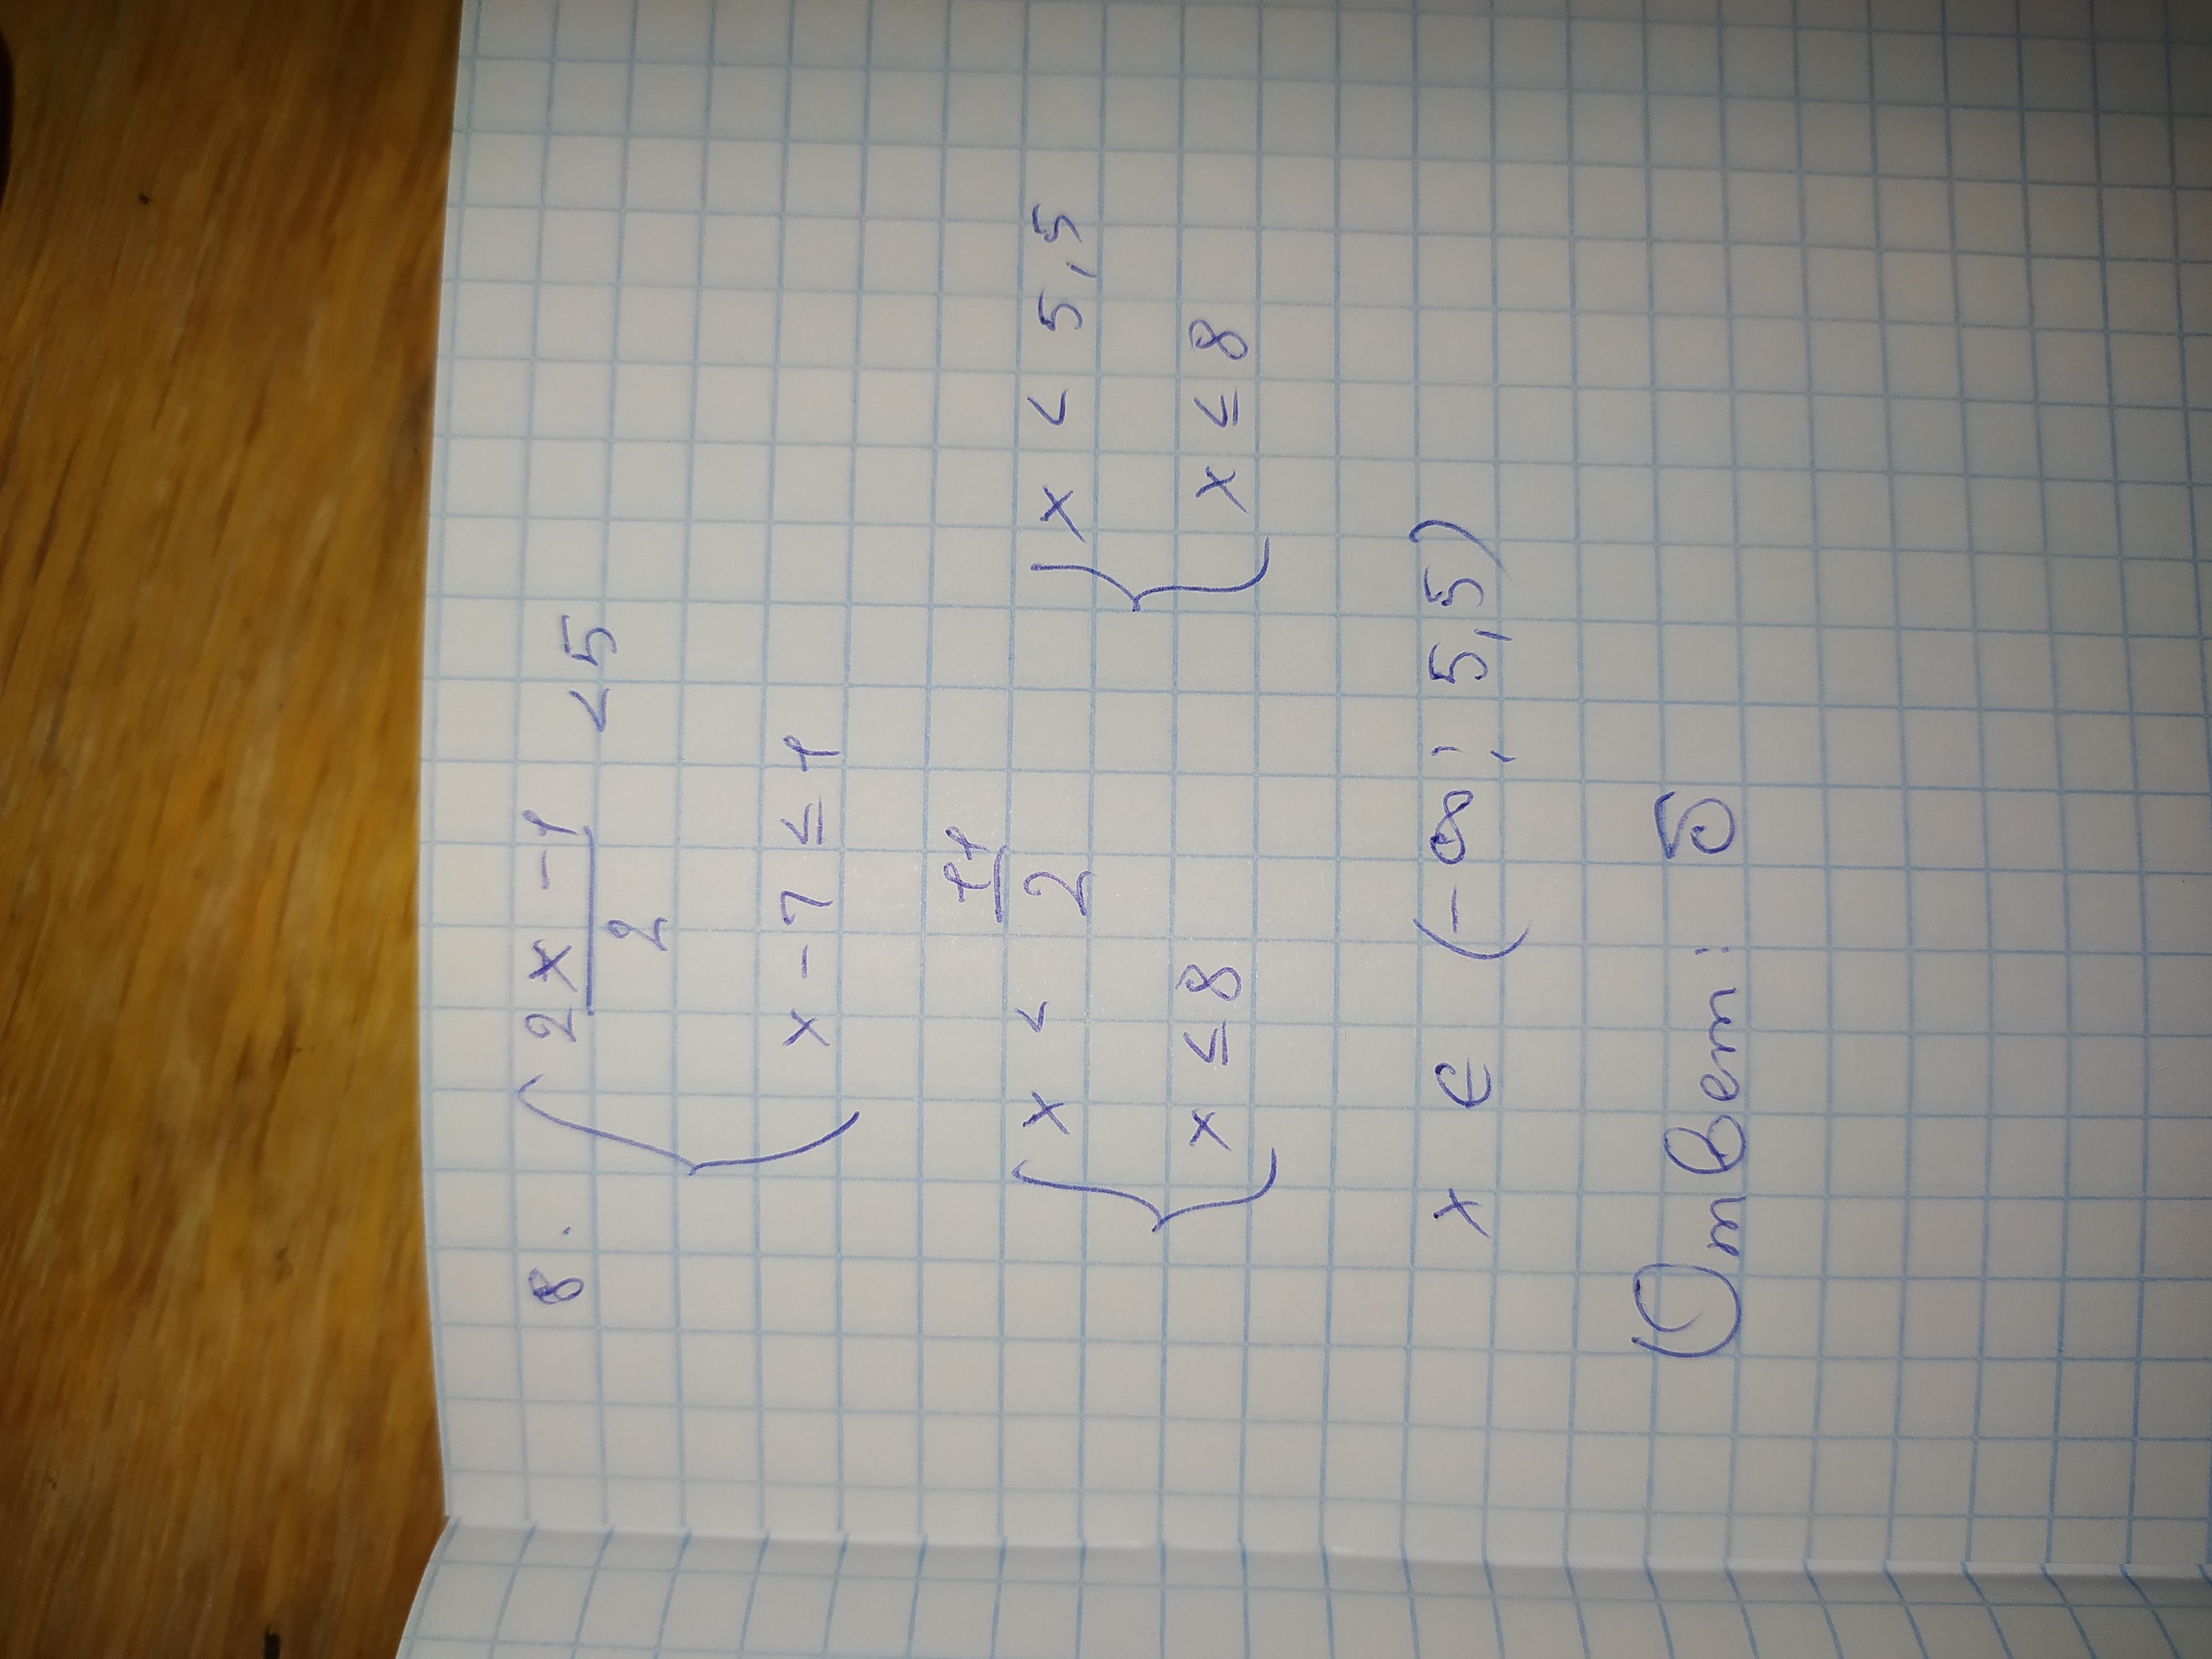 8. { (2x - 1)/2 < 5
x - 7 ≤ 1
{ x < 11/2 { x < 5,5
x ≤ 8 x ≤ 8
x ∈ (-∞; 5,5)
Ответ: б